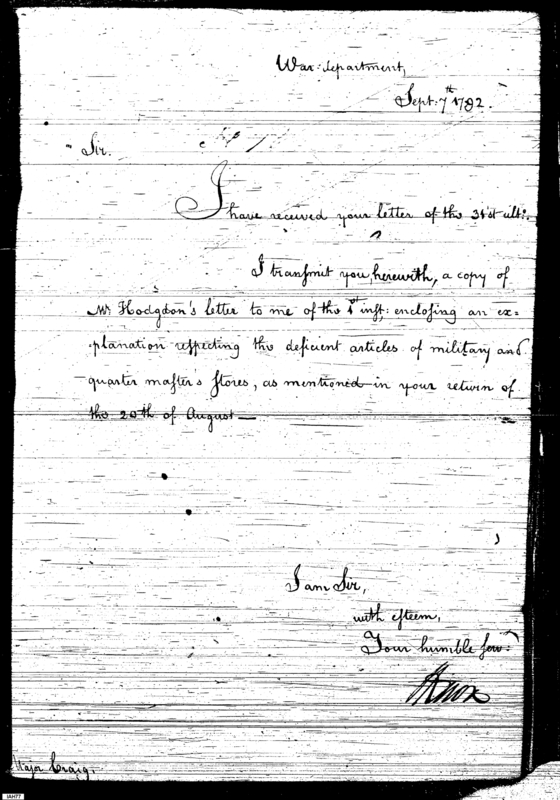 War department,
Sept: 7th 1792.
Sir.
I have received your letter of the 31st ulto.
I transmit you, herewith, a copy of
Mr. Hodgdon's letter to me of the 1st inst: enclosing an ex=
=planation respecting the deficient articles of military and
quarter master's stores, as mentioned in your return of
the 20th of August—
I am Sir,
with esteem,
Your humble serv.t
H Knox
Major Craig.
IAH77